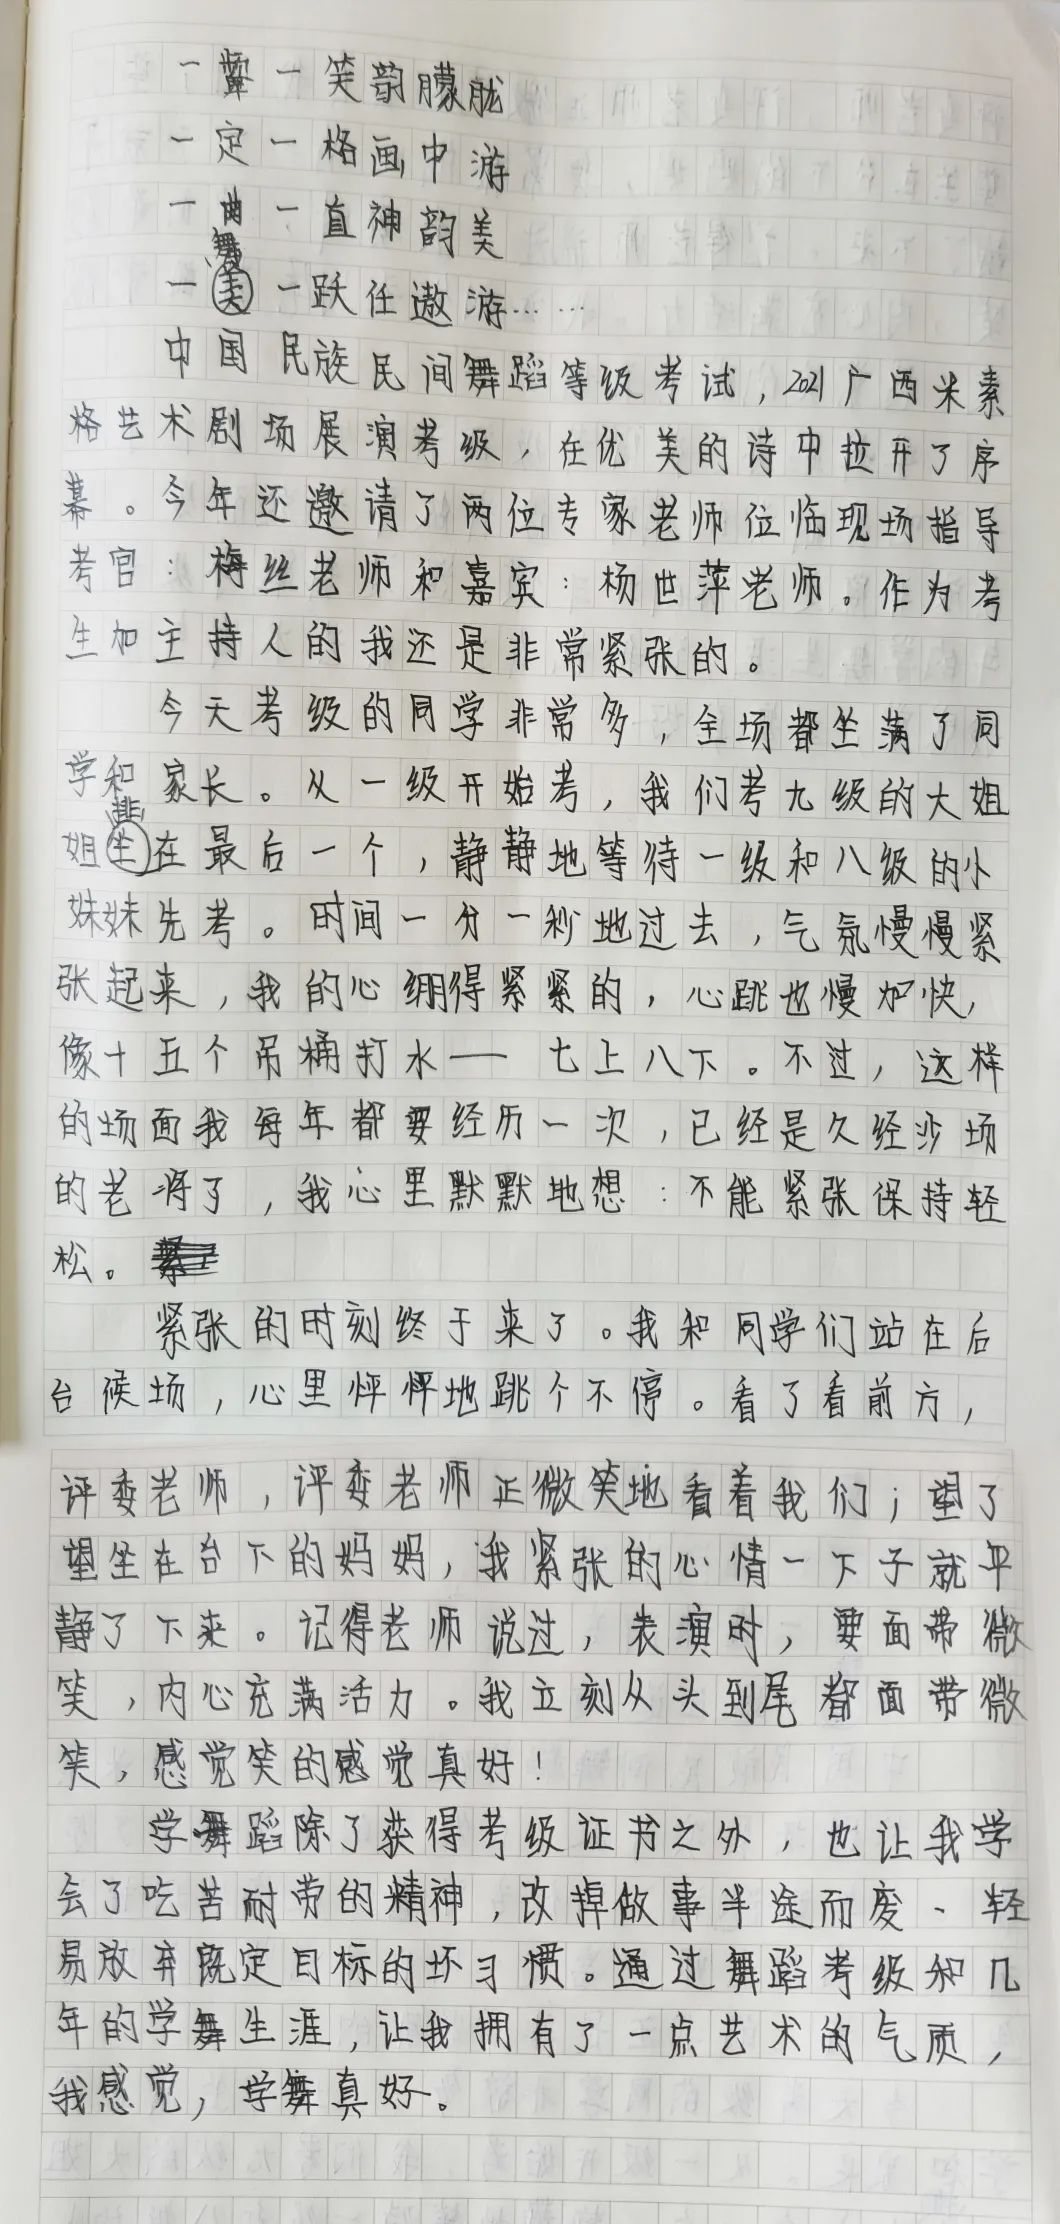 一颦一笑韵朦胧
一定一格画中游
一曲一直神韵美
一舞一跃任遨游……
中国民族民间舞蹈等级考试，2021广西米素
格艺术剧场展演考级，在优美的诗中拉开了序
幕。今年还邀请了两位专家老师位临现场指导
考官：梅丝老师和嘉宾：杨世萍老师。作为考
生加主持人的我还是非常紧张的。
今天考级的同学非常多，全场都坐满了同
学和家长。从一级开始考，我们考九级的大姐
姐排在最后一个，静静地等待一级和八级的小
妹妹先考。时间一分一秒地过去，气氛慢慢紧
张起来，我的心绷得紧紧的，心跳也慢加快，
像十五个吊桶打水——七上八下。不过，这样
的场面我每年都要经历一次，已经是久经沙场
的老将了，我心里默默地想：不能紧张保持轻
松。
紧张的时刻终于来了。我和同学们站在后
台候场，心里怦怦地跳个不停。看了看前方，
评委老师，评委老师正微笑地看着我们；望了
望坐在台下的妈妈，我紧张的心情一下子就平
静了下来。记得老师说过，表演时，要面带微
笑，内心充满活力。我立刻从头到尾都面带微
笑，感觉笑的感觉真好！
学舞蹈除了获得考级证书之外，也让我学
会了吃苦耐劳的精神，改掉做事半途而废、轻
易放弃既定目标的坏习惯。通过舞蹈考级和几
年的学舞生涯，让我拥有了一点艺术的气质，
我感觉，学舞真好。